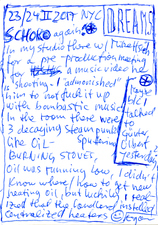 23/24 II 2017 NYC
DREAMS
SCHOKO again
In my studio there w/
for a pre-production meeting
for a music video he
is shooting. I "admonished"
him to not fuck it up
with bombastic music.
In the room there were
3 decaying steampunk
like OIL- Sputtering
BURNING STOVES,
Oil was running low, I didn't
know where/how to get new
heating oil, but luckily I real-
ized that the landlord installed
centralized heaters
Maybe
b/c I
talked
to
Günter
Gilbert
yesterday